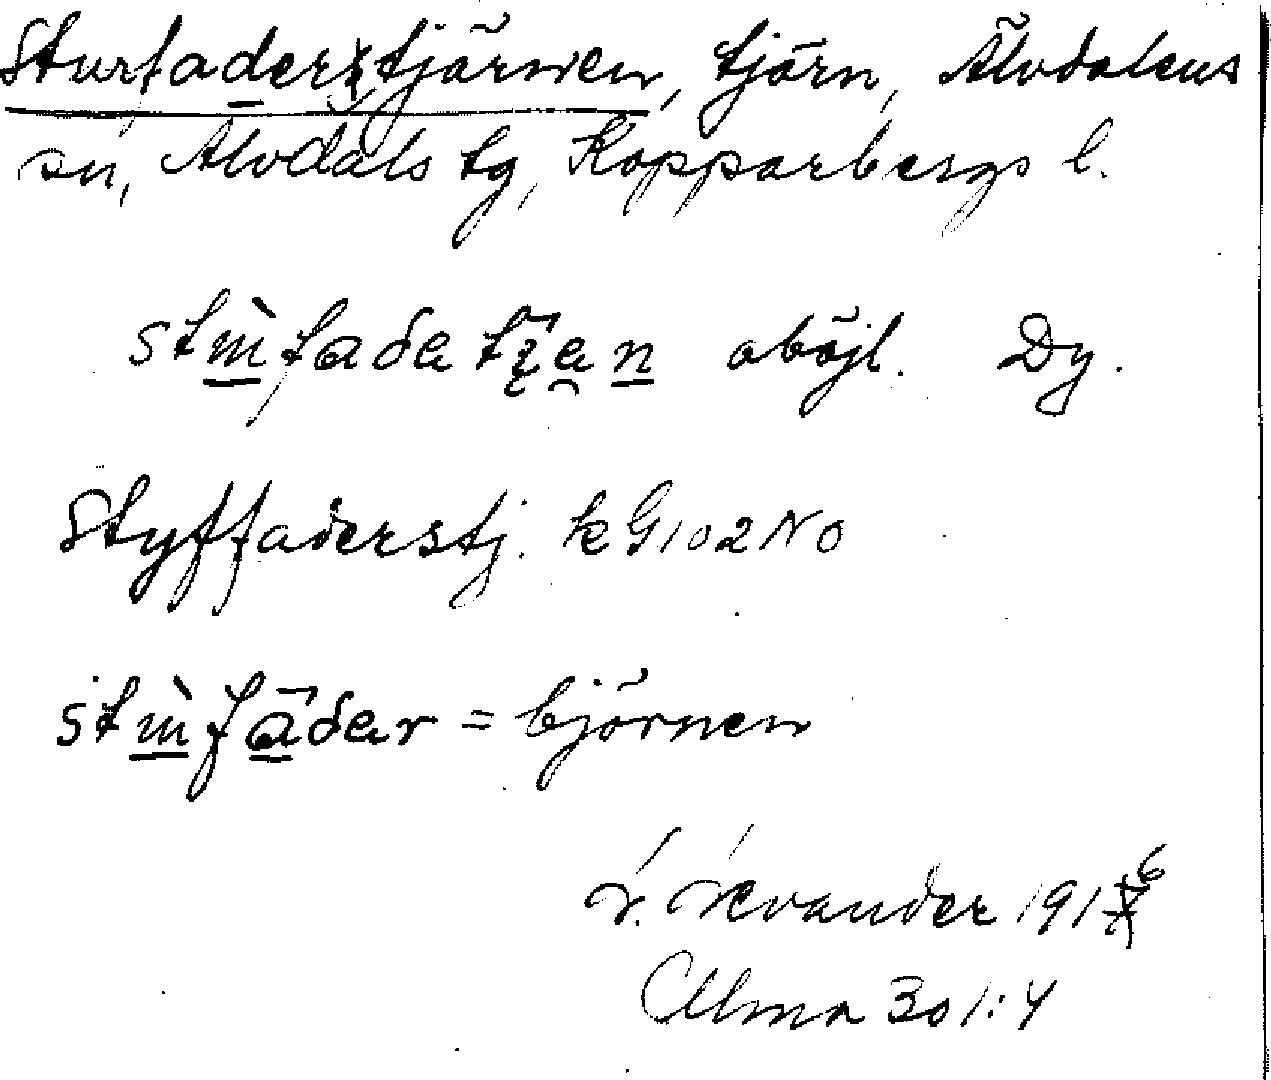 Sturfaderstjärnen, tjärn, Älvdalens
sn, Älvdals tg, Kopparbergs l.
oböjl. Dy.
Styffaderstj. kG102NO
= björnen
L. Levander 1916
Ulma 301:4